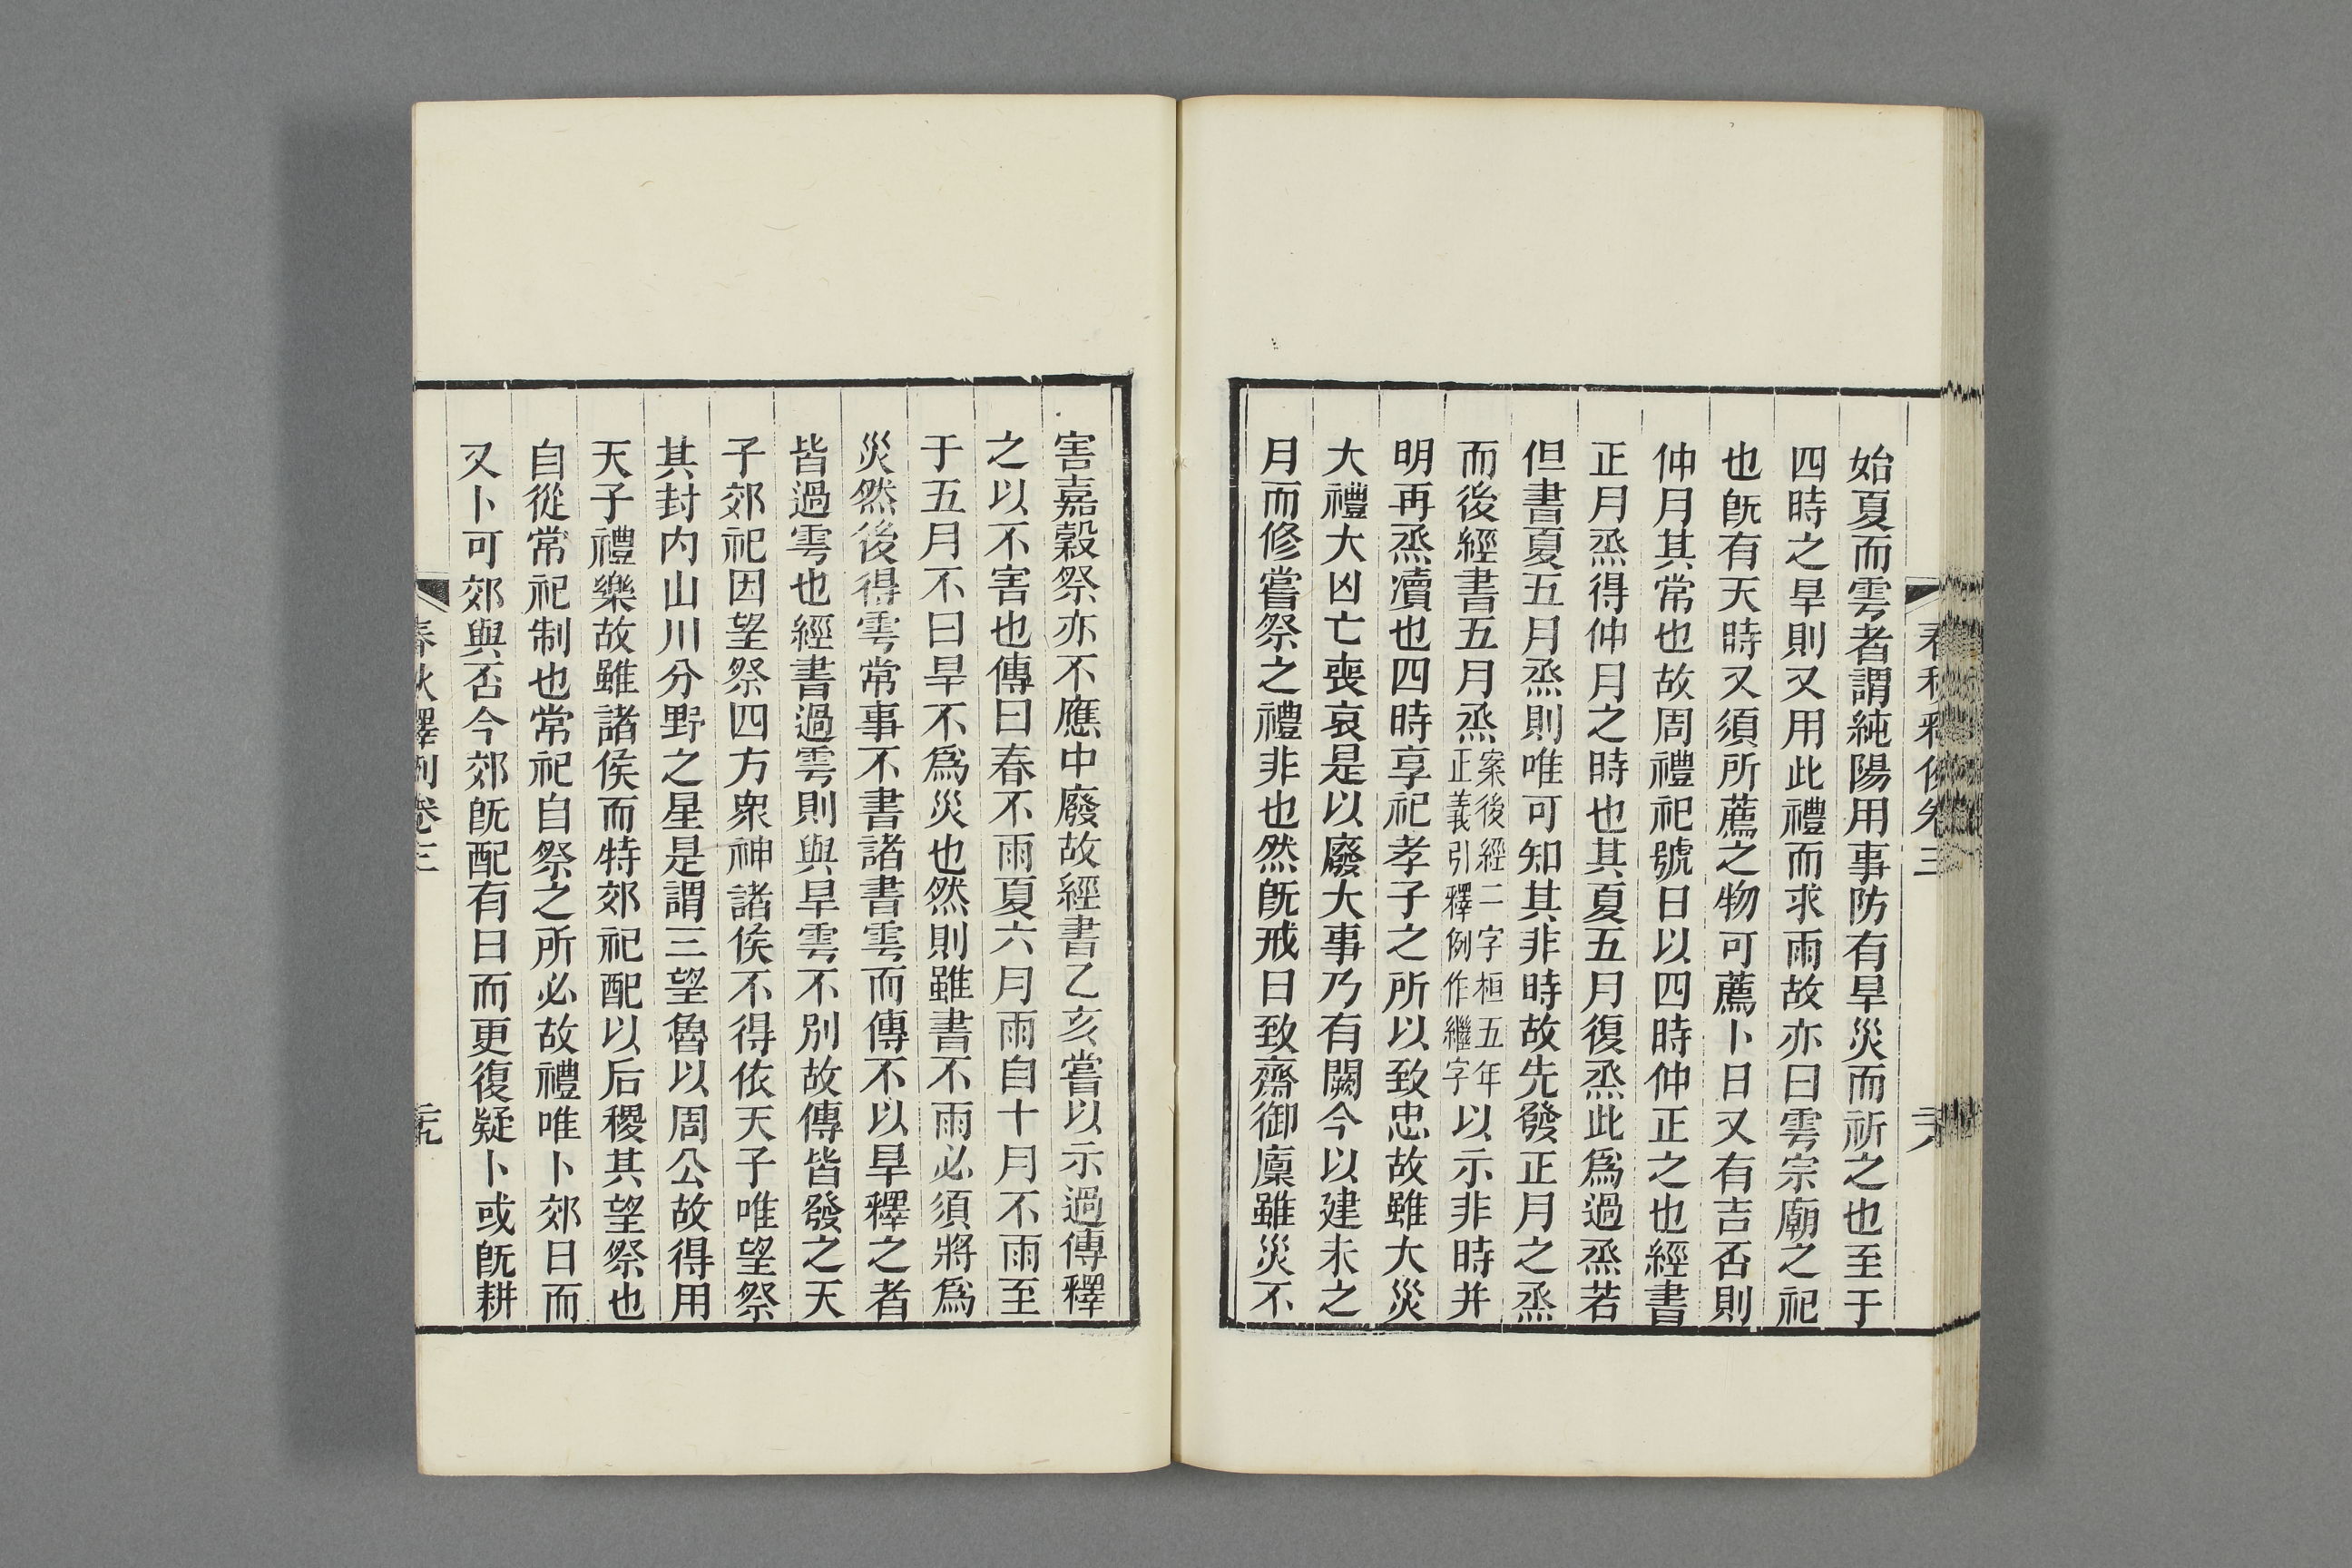 始夏而雩者謂純陽用事防有旱災而祈之也至于
四時之旱則又用此禮而求雨故亦曰雩宗廟之祀
也既有天時又須所薦之物可薦卜日又有吉否則
仲月其常也故周禮祀號日以四時仲正之也經書
正月烝得仲月之時也其夏五月復烝此爲過烝若
但書夏五月烝則唯可知其非時故先發正月之烝
而後經書五月烝案後經二字桓五年正義引釋例作繼字以示非時并
明再烝瀆也四時享祀孝子之所以致忠故雖大災
大禮大凶亡喪哀是以廢大事乃有闕今以建未之
月而修嘗祭之禮非也然既戒日致齋御廩雖災不
害嘉穀祭亦不應中廢故經書乙亥嘗以示過傳釋
之以不害也傳曰春不雨夏六月雨自十月不雨至
于五月不曰旱不爲災也然則雖書不雨必須將爲
災然後得雩常事不書諸書雩而傳不以旱釋之者
皆過雩也經書過雩則與旱雩不別故傳皆發之天
子郊祀因望祭四方衆神諸侯不得依天子唯望祭
其封内山川分野之星是謂三望魯以周公故得用
天子禮樂故雖諸侯而特郊祀配以后稷其望祭也
自從常祀制也常祀自祭之所必故禮唯卜郊日而
又卜可郊與否今郊既配有日而更復疑卜或既耕
春秋釋例卷三